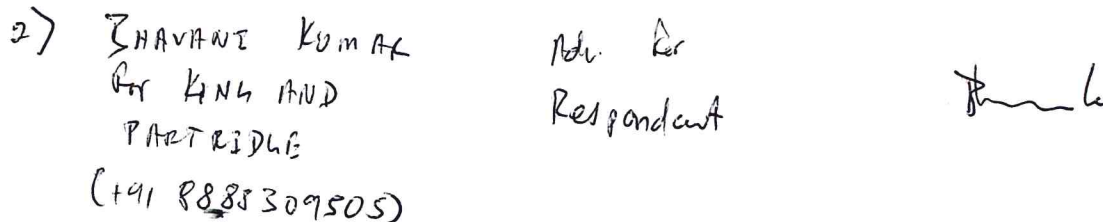 2) BHAVANI KUMAR
for KING AND
PARTRIDGE
(+91 8885309505)
Adv. for
Respondent